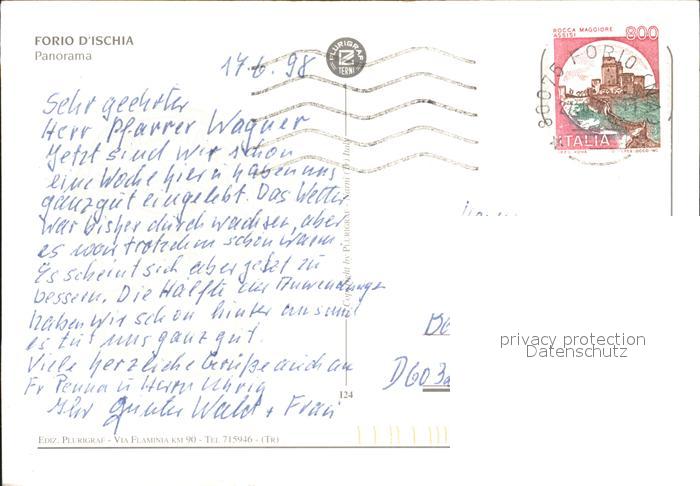 FORIO D'ISCHIA
Panorama
17.6.98
PLURIGRAF
TERNI
ROCCA MAGGIORE
ASSISI
800
80075 FORIO
ITALIA
Sehr geehrter
Herr Pfarrer Wagner
Jetzt sind wir schon
eine Woche hier u haben uns
ganz gut eingelebt. Das Wetter
war bisher durchwachsen, aber
es war trotzdem schön warm.
Es scheint sich aber jetzt zu
bessern. Die Hälfte der Anwendungen
haben wir schon hinter uns und
es tut uns ganz gut.
Viele herzliche Grüße auch an
Fr Penna u Herrn Uhrig
Ihr Günter Wald + Frau
Copyright by PLURIGRAF
privacy protection
Datenschutz
D603
124
EDIZ. PLURIGRAF - VIA FLAMINIA KM 90 - TEL 715946 - (TR)